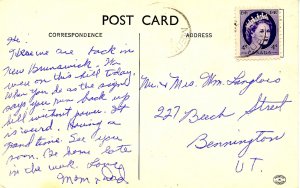 POST CARD
CORRESPONDENCE
ADDRESS
Hi.
Here we are back in
New Brunswick. We
were on this hill today.
When you do as the signs
says you run back up
hill without power. It
is weird. Having a
grand time. See you
soon. Be home late
in the wk. Love
Mom & Dad
Mr. & Mrs. Wm. Langlois
227 Beech Street
Bennington
VT.